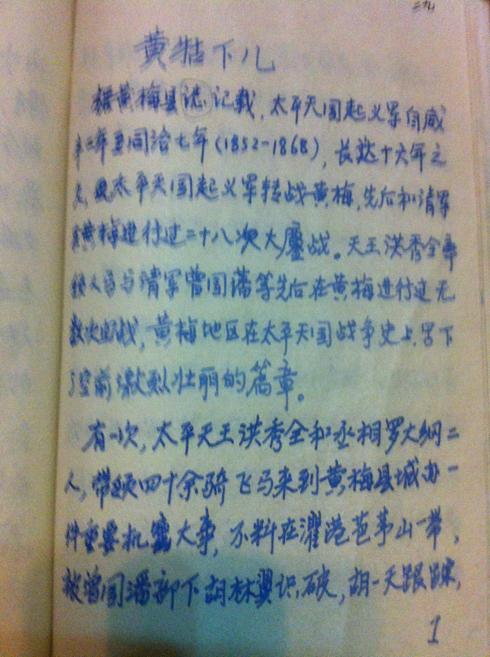 黄牯下儿
据黄梅县志记载,太平天国起义军自咸
丰二年至同治七年(1852-1868),长达十六年之
久,太平天国起义军转战黄梅,先后和清军
在黄梅进行过二十八次大鏖战。天王洪秀全率
领人马与清军曾国藩等先后在黄梅进行过无
数次血战,黄梅地区在太平天国战争史上写下
了空前激烈壮丽的篇章。
有一次,太平天王洪秀全和丞相罗大纲二
人,带领四十余骑飞马来到黄梅县城办一
件重要机密大事,不料在濯港芭茅山一带,
被曾国潘部下胡林翼识破,胡一天跟踪,
1